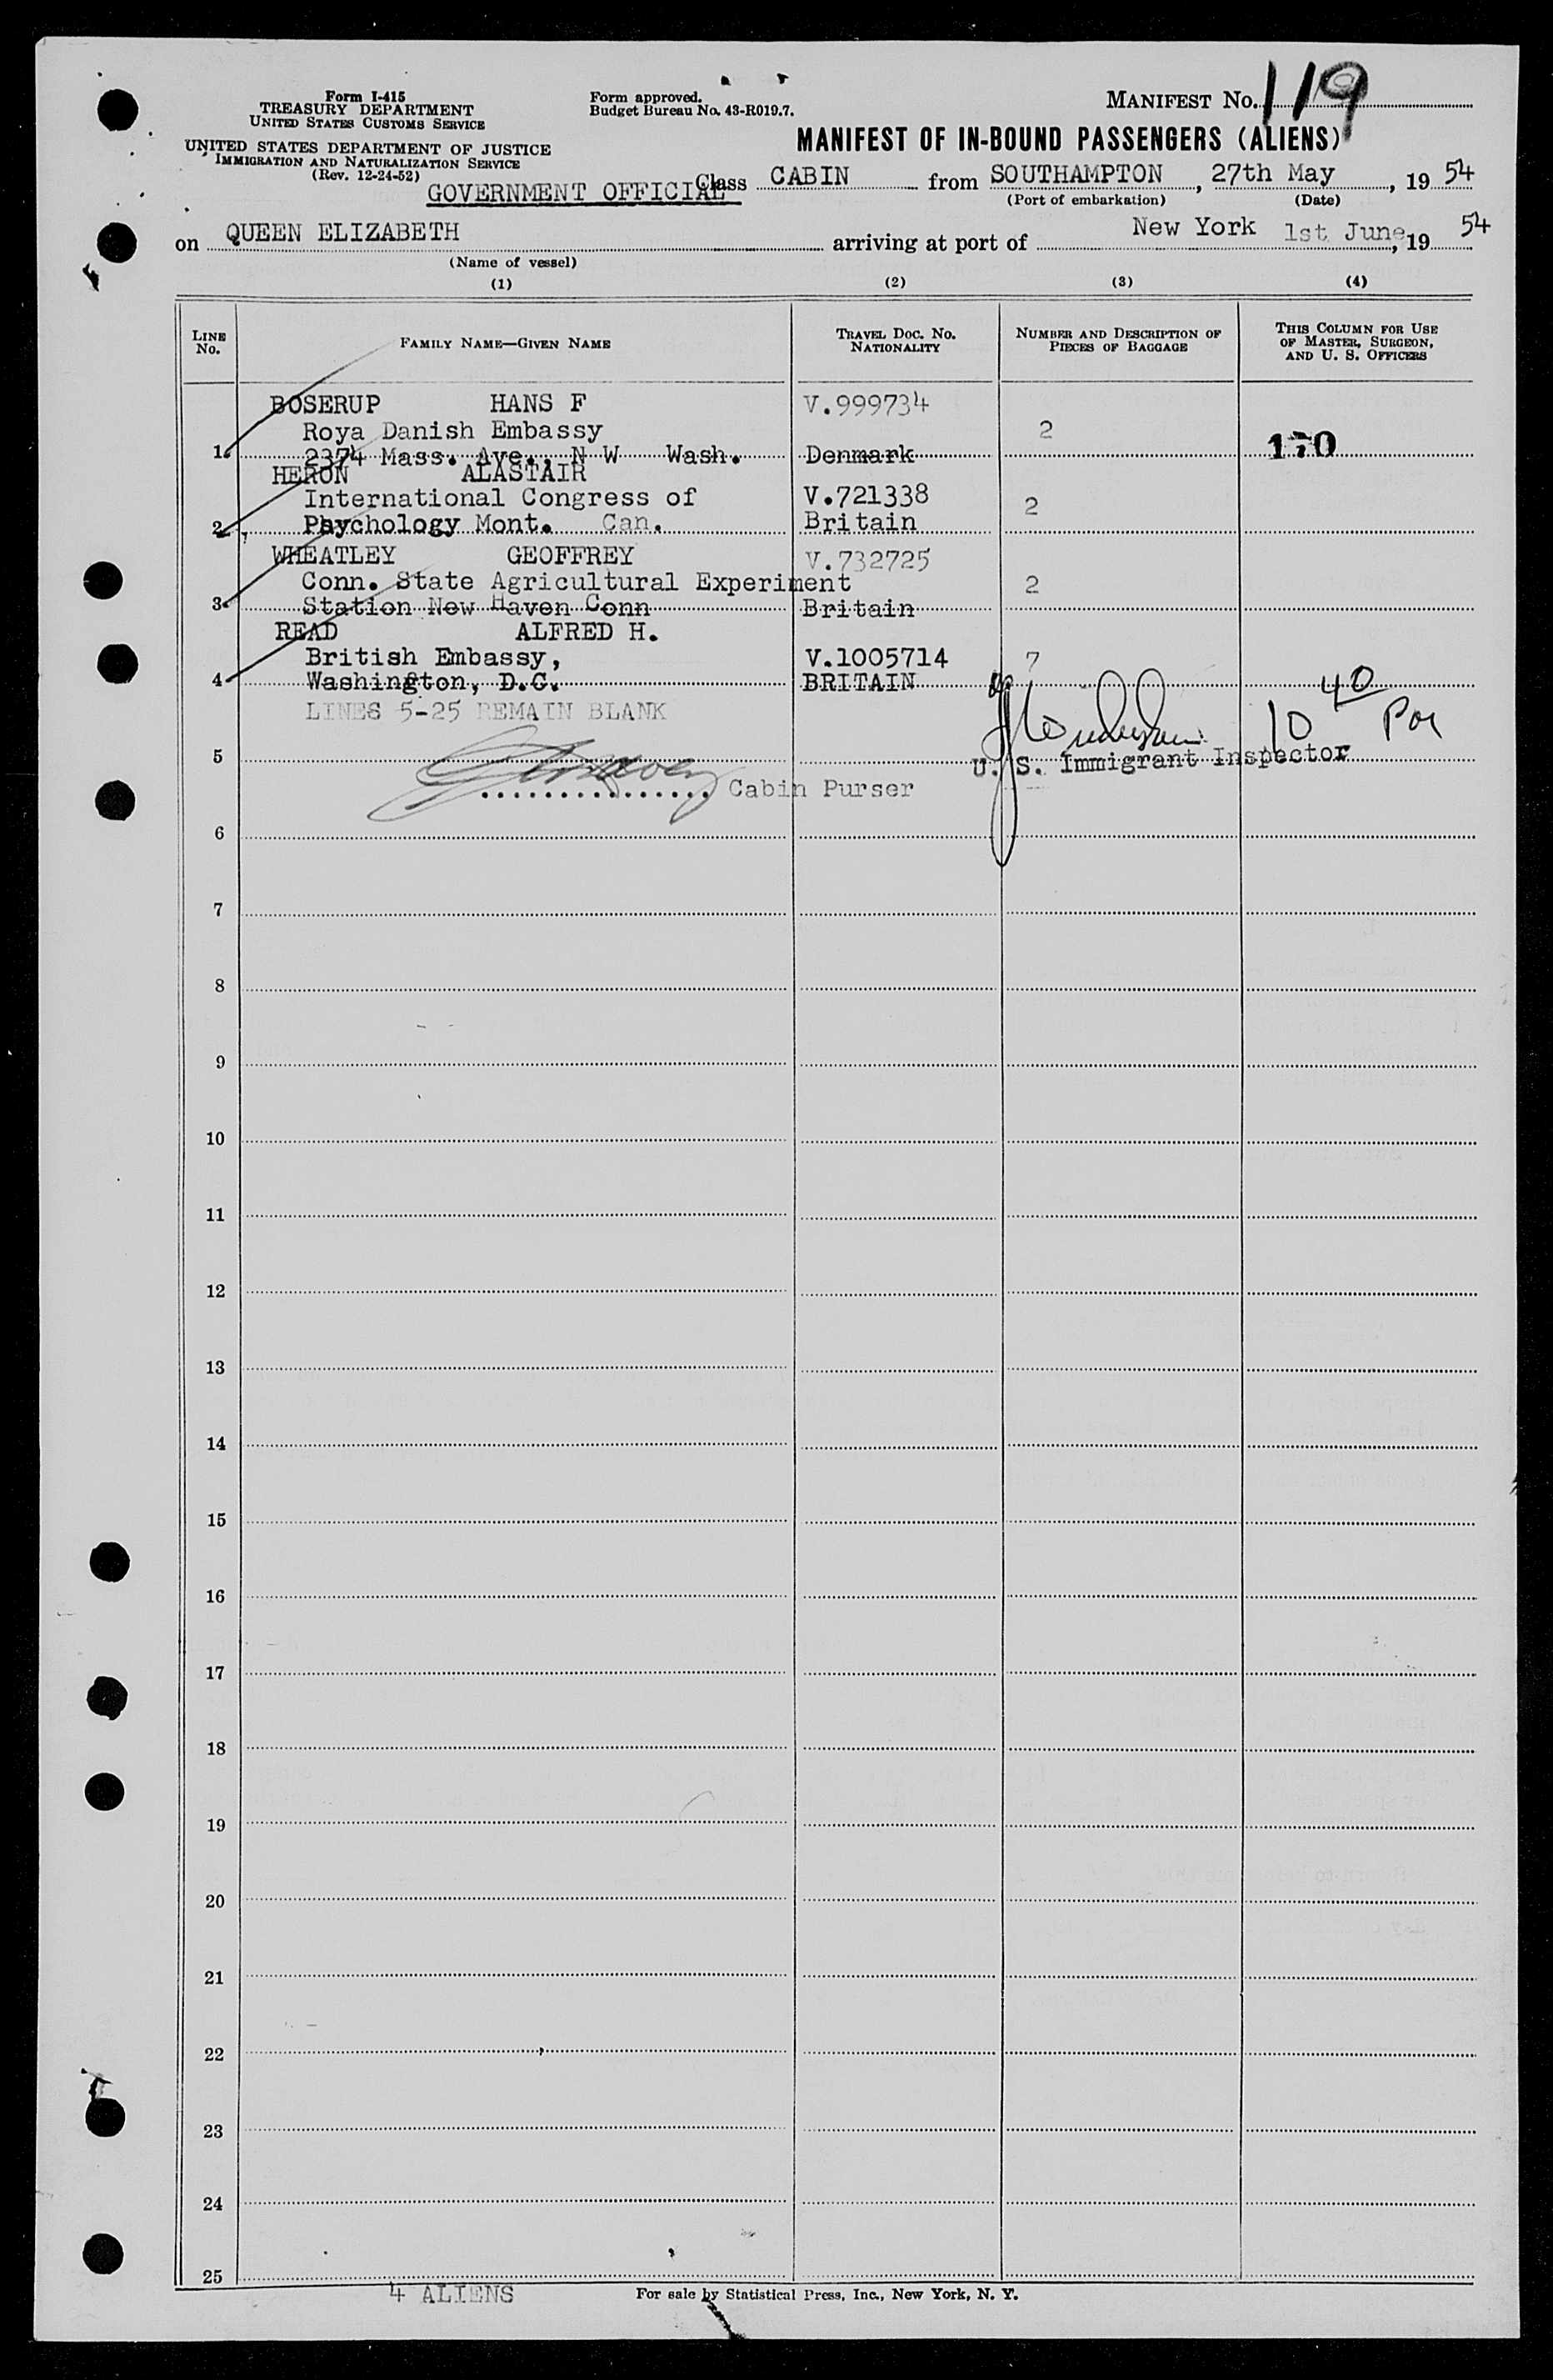 Form I-415
TREASURY DEPARTMENT
UNITED STATES CUSTOMS SERVICE
UNITED STATES DEPARTMENT OF JUSTICE
IMMIGRATION AND NATURALIZATION SERVICE
(Rev. 12-24-52)
Form approved.
Budget Bureau No. 43-R019.7.
MANIFEST NO. 119
MANIFEST OF IN-BOUND PASSENGERS (ALIENS)
GOVERNMENT OFFICIAL Class CABIN from SOUTHAMPTON, 27th May, 19 54
(Port of embarkation) (Date)
on QUEEN ELIZABETH arriving at port of New York 1st June, 19 54
(Name of vessel)
(1) (2) (3) (4)
LINE No. FAMILY NAME—GIVEN NAME TRAVEL DOC. NO. NATIONALITY NUMBER AND DESCRIPTION OF PIECES OF BAGGAGE THIS COLUMN FOR USE OF MASTER, SURGEON, AND U. S. OFFICERS
BOSERUP HANS F V.999734
Roya Danish Embassy 2
1 2374 Mass. Ave., N W Wash. Denmark 170
HERON ALASTAIR
International Congress of V.721338 2
2 Psychology Mont. Can. Britain
WHEATLEY GEOFFREY V.732725
Conn. State Agricultural Experiment 2
3 Station New Haven Conn Britain
READ ALFRED H.
British Embassy, V.1005714 7
4 Washington, D.C. BRITAIN
LINES 5-25 REMAIN BLANK 10 40
5 U. S. Immigrant Inspector
Cabin Purser
6
7
8
9
10
11
12
13
14
15
16
17
18
19
20
21
22
23
24
25
4 ALIENS For sale by Statistical Press, Inc., New York, N. Y.